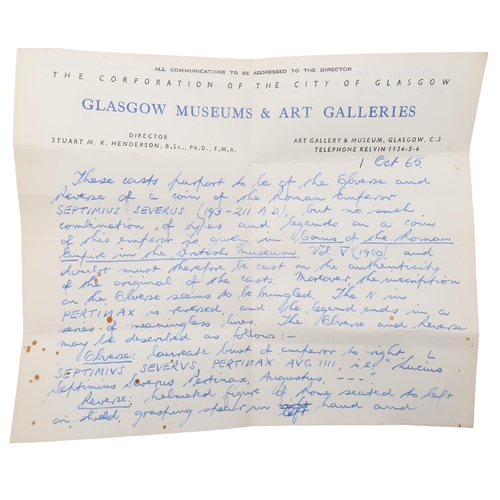 ALL COMMUNICATIONS TO BE ADDRESSED TO THE DIRECTOR
THE CORPORATION OF THE CITY OF GLASGOW
GLASGOW MUSEUMS & ART GALLERIES
DIRECTOR
STUART M. K. HENDERSON, B.Sc., Ph.D., F.M.A.
ART GALLERY & MUSEUM, GLASGOW, C.3
TELEPHONE KELVIN 1134-5-6
1 Oct 65
These casts purport to be of the Obverse and
Reverse of a coin of the Roman Emperor
SEPTIMIUS SEVERUS (193-211 A.D.), but no such
combination of types and legends on a coin
of this emperor is given in Coins of the Roman
Empire in the British Museum, Vol. V (1950) and
doubt must therefore be cast on the authenticity
of the original of the casts. Moreover the inscription
on the Obverse seems to be bungled. The N in
PERTINAX is reversed, and the legend ends in a
series of meaningless lines. The Obverse and Reverse
may be described as follows :-
Obverse: laureate bust of emperor to right, L
SEPTIMIUS SEVERUS PERTINAX AVG IIII, i.e. "Lucius
Septimius Severus Pertinax, Augustus, ---"
Reverse: helmeted figure of Rome seated to left
on shield, grasping spear in left hand and